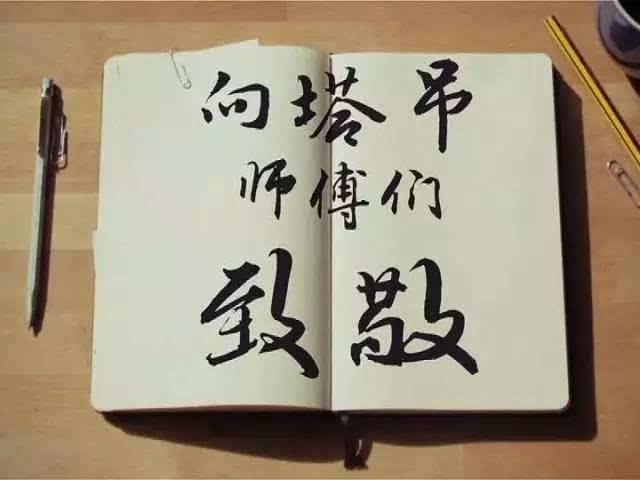 向塔吊
师傅们
致敬